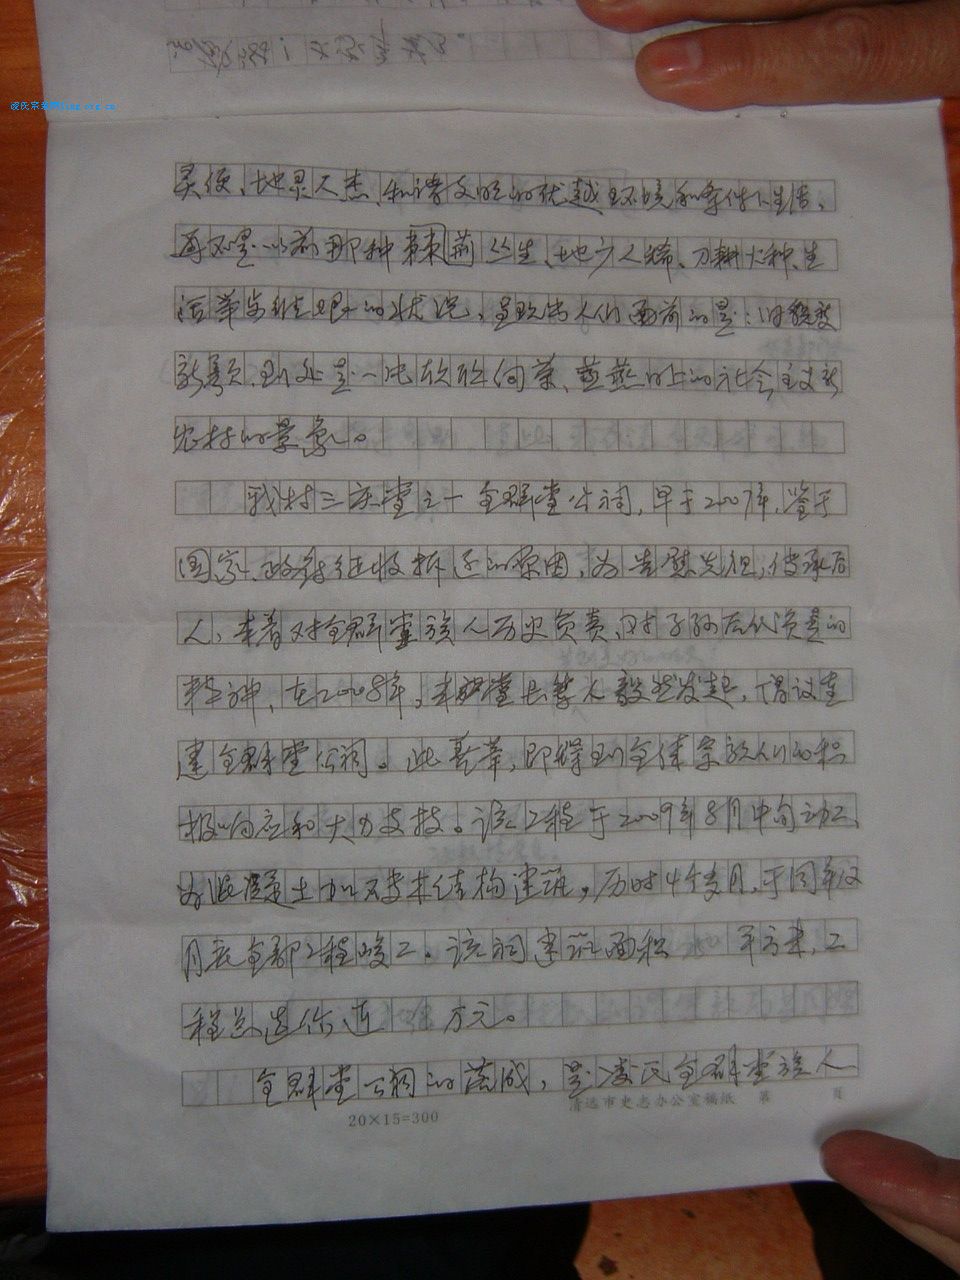 灵便、地灵人杰、和谐文明的优越环境和条件下生活，
再不是以前那种荆棘丛生、地少人稀、刀耕火种、生
活艰的状况，呈现出人们面前的是：旧貌变
新颜，到处是一片欣欣向荣、蒸蒸日上的社会主义新
农村的景象。
我村三庆堂之一全群堂公祠，早于2007年，鉴于
国家政府征收拆迁的原因，为告慰先祖，传承后
人，本着对全群堂族人历史负责，对子孙后代负责的
精神，在2008年，毅然发起，倡议重
建全群堂公祠。此善举，即得到全体宗族人们的积
极响应和大力支持。该工程于2009年8月中旬动工，
为混凝土加结构建筑，历时4个多月，于同年12
月底全部工程峻工。该祠建筑面积 平方米，工
程总造价达 万元。
全群堂公祠的落成，是凌氏全群堂族人
20×15=300
清远市史志办公室稿纸 第 页